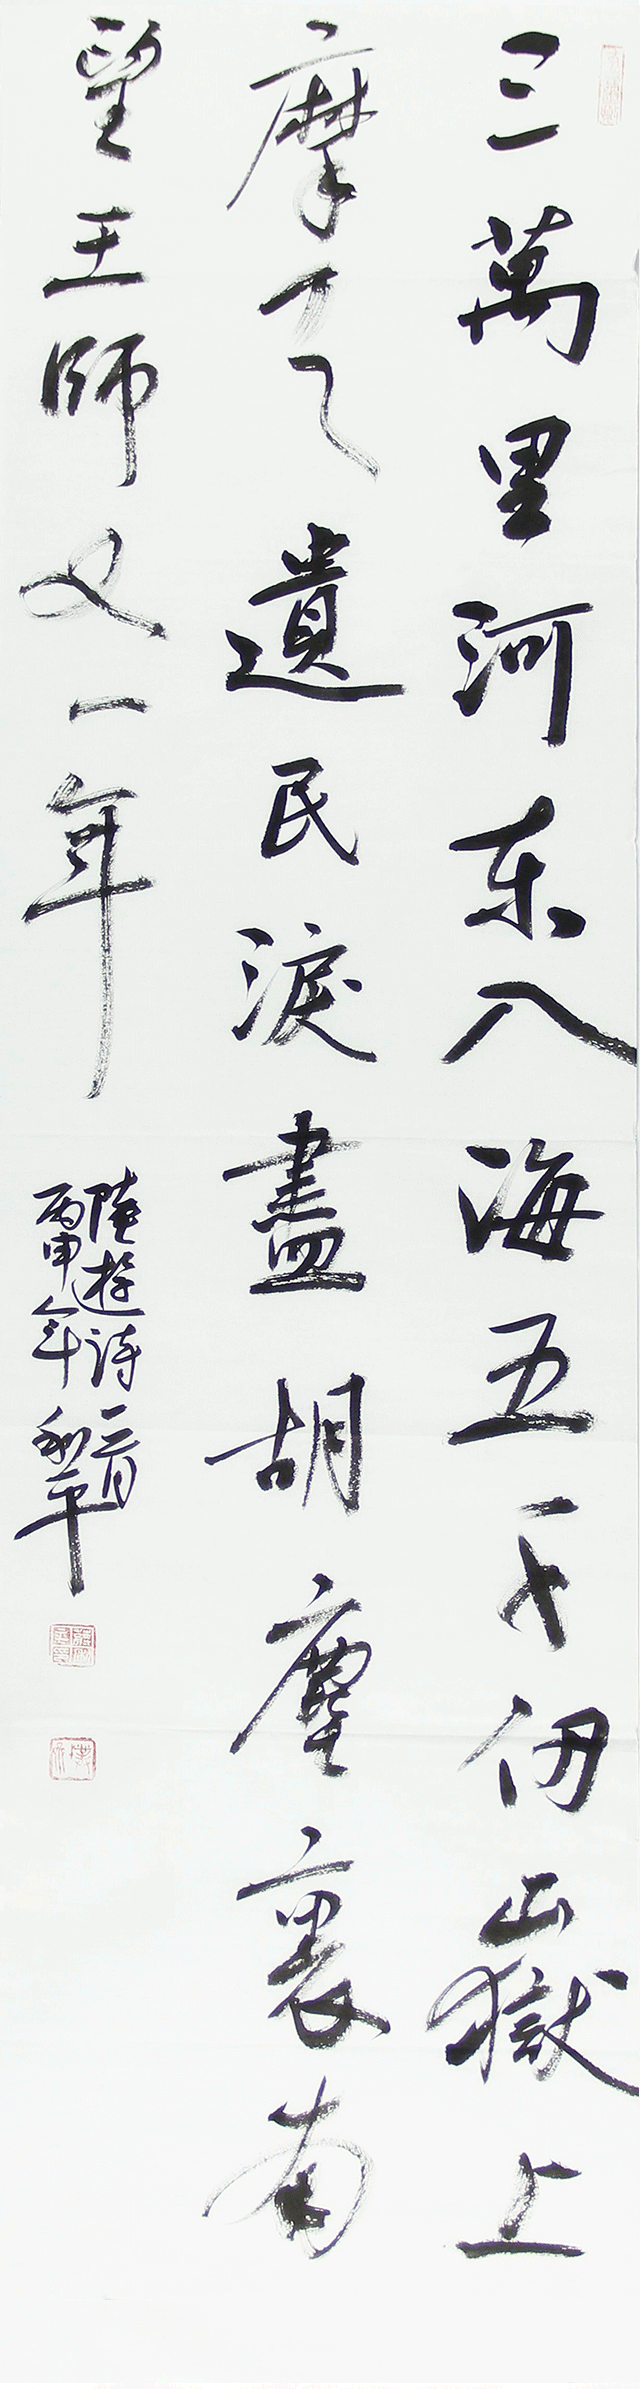 三萬里河東入海五千仞嶽上
摩天遺民淚盡胡塵裏南
望王師又一年
陸遊詩一首
丙申年